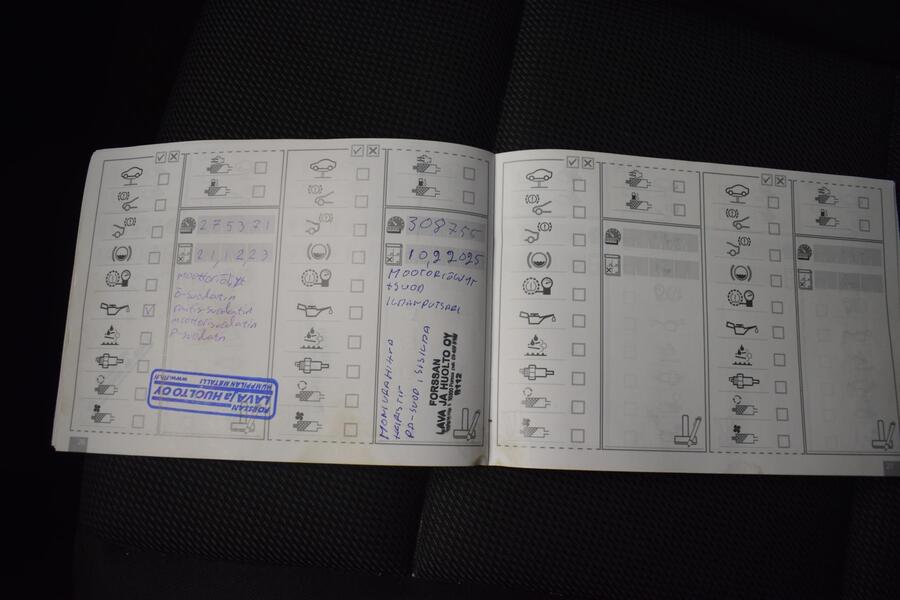 275371
21,1223
moottoriöljyt
Ö-suodatin
raitis-suodatin
moottorisuodatin
P-suodatin
FORSSAN
LAVA ja HUOLTO OY
HUMPPILAN METALLI
308755
10,22025
MOOTORIÖLJYT
+SUOD
ILMANPUTSARI
MONIURAHIHNA
RA-SUOD, SISÄILMA
FORSSAN
LAVA JA HUOLTO OY